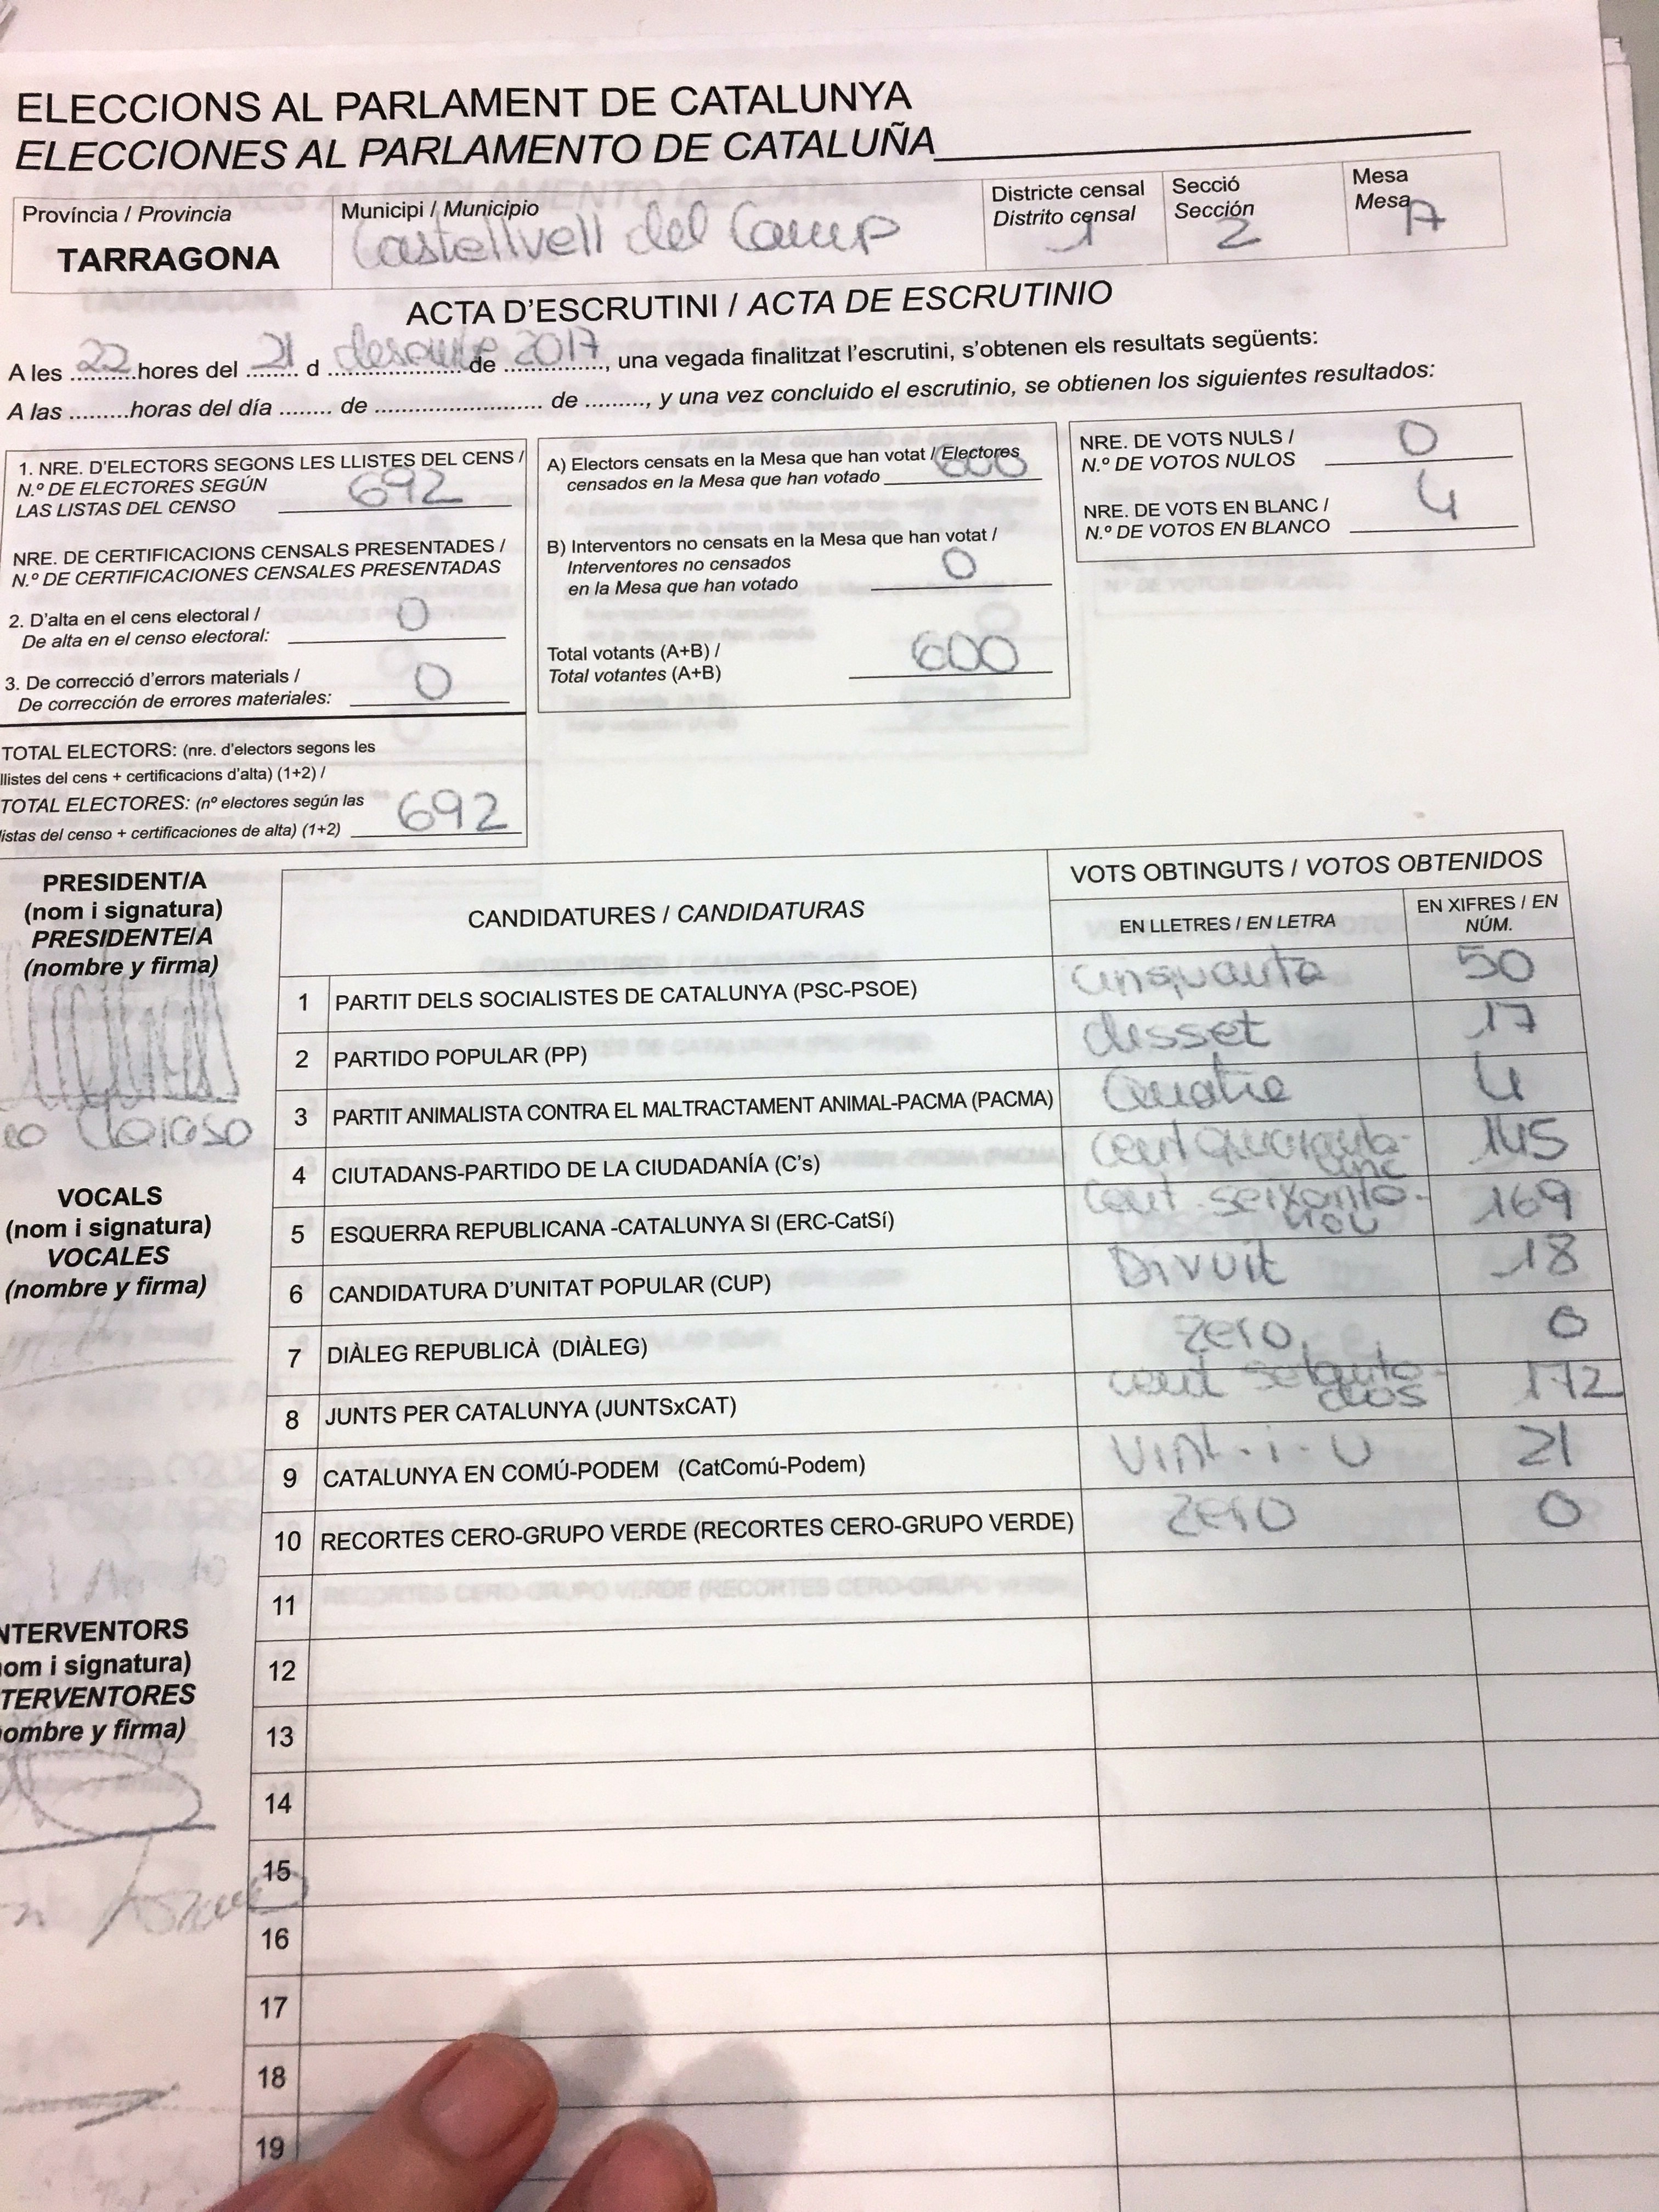 ELECCIONS AL PARLAMENT DE CATALUNYA
ELECCIONES AL PARLAMENTO DE CATALUÑA
Província / Provincia
TARRAGONA
Municipi / Municipio
Castellvell del Camp
Districte censal
Distrito censal
1
Secció
Sección
2
Mesa
Mesa
A
ACTA D'ESCRUTINI / ACTA DE ESCRUTINIO
A les 22 hores del 21 d desembre de 2017, una vegada finalitzat l'escrutini, s'obtenen els resultats següents:
A las .........horas del día ........ de ......................... de ........., y una vez concluido el escrutinio, se obtienen los siguientes resultados:
1. NRE. D'ELECTORS SEGONS LES LLISTES DEL CENS /
N.º DE ELECTORES SEGÚN
LAS LISTAS DEL CENSO 692
NRE. DE CERTIFICACIONS CENSALS PRESENTADES /
N.º DE CERTIFICACIONES CENSALES PRESENTADAS
2. D'alta en el cens electoral /
De alta en el censo electoral: 0
3. De correcció d'errors materials /
De corrección de errores materiales: 0
TOTAL ELECTORS: (nre. d'electors segons les
llistes del cens + certificacions d'alta) (1+2) /
TOTAL ELECTORES: (nº electores según las
listas del censo + certificaciones de alta) (1+2) 692
A) Electors censats en la Mesa que han votat / Electores
censados en la Mesa que han votado 600
B) Interventors no censats en la Mesa que han votat /
Interventores no censados
en la Mesa que han votado 0
Total votants (A+B) /
Total votantes (A+B) 600
NRE. DE VOTS NULS /
N.º DE VOTOS NULOS 0
NRE. DE VOTS EN BLANC /
N.º DE VOTOS EN BLANCO 4
PRESIDENT/A
(nom i signatura)
PRESIDENTE/A
(nombre y firma)
VOCALS
(nom i signatura)
VOCALES
(nombre y firma)
NTERVENTORS
om i signatura)
TERVENTORES
ombre y firma)
CANDIDATURES / CANDIDATURAS
VOTS OBTINGUTS / VOTOS OBTENIDOS
EN LLETRES / EN LETRA
EN XIFRES / EN
NÚM.
1 PARTIT DELS SOCIALISTES DE CATALUNYA (PSC-PSOE) cinquanta 50
2 PARTIDO POPULAR (PP) disset 17
3 PARTIT ANIMALISTA CONTRA EL MALTRACTAMENT ANIMAL-PACMA (PACMA) Quatre 4
4 CIUTADANS-PARTIDO DE LA CIUDADANÍA (C's) cent quaranta-cinc 145
5 ESQUERRA REPUBLICANA -CATALUNYA SI (ERC-CatSí) cent seixanta-nou 169
6 CANDIDATURA D'UNITAT POPULAR (CUP) Divuit 18
7 DIÀLEG REPUBLICÀ (DIÀLEG) zero 0
8 JUNTS PER CATALUNYA (JUNTSxCAT) cent setanta-dos 172
9 CATALUNYA EN COMÚ-PODEM (CatComú-Podem) Vint-i-U 21
10 RECORTES CERO-GRUPO VERDE (RECORTES CERO-GRUPO VERDE) zero 0
11
12
13
14
15
16
17
18
19